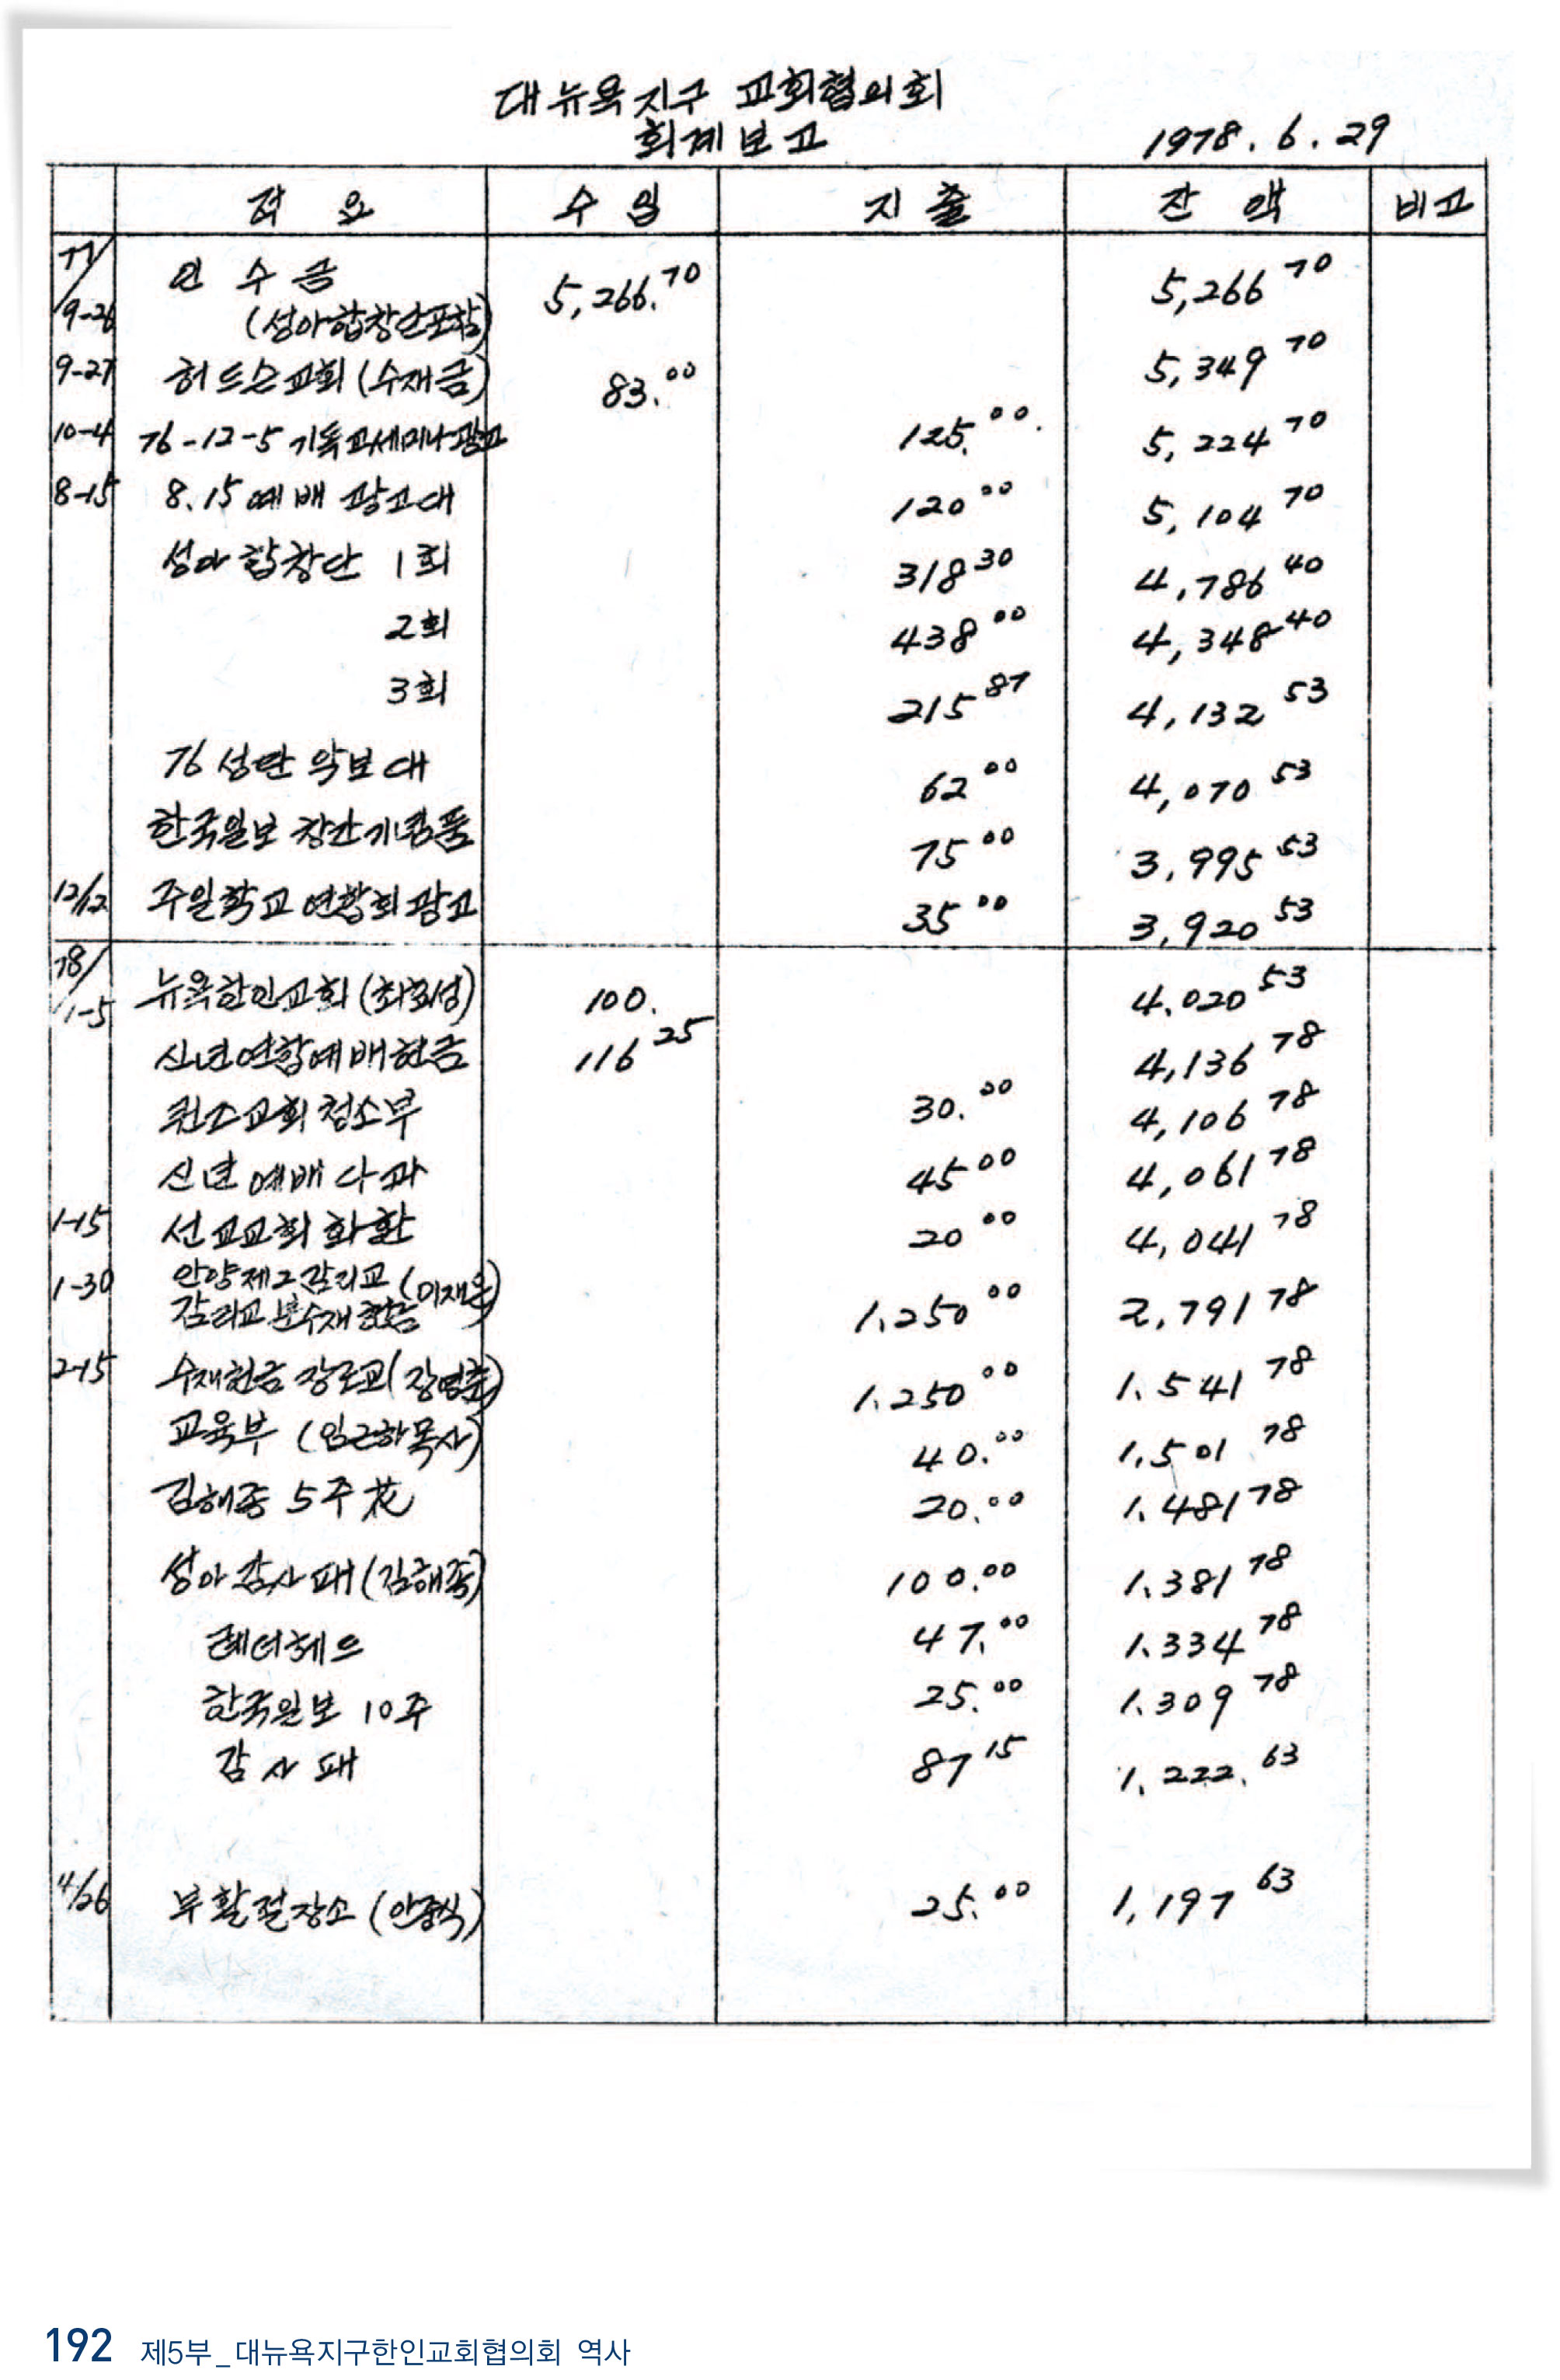 대뉴욕지구 교회협의회
회계보고 1978. 6. 29
적 요 수 입 지 출 잔 액 비고
77/9-26 인 수 금 5,266.70 5,266 70
(성아합창단포함)
9-27 허드슨교회(수재금) 83.00 5,349 70
10-4 76-12-5 기독교세미나광고 125.00 5,224 70
8-15 8.15 예배 광고대 120 00 5,104 70
성아합창단 1회 318 30 4,786 40
2회 438 00 4,348 40
3회 215 87 4,132 53
76 성탄 악보대 62 00 4,070 53
한국일보 창간기념품 75 00 3,995 53
12/12 주일학교 연합회 광고 35 00 3,920 53
78/1-5 뉴욕한인교회 100. 4.020 53
신년연합예배헌금 116 25 4,136 78
퀸즈교회 청소부 30.00 4,106 78
신년 예배 다과 45 00 4,061 78
1-15 선교교회 화환 20 00 4,041 78
1-30 안양제2감리교 (이재은)
감리교분수재헌금 1.250 00 2,791 78
2-15 수재헌금 장로교(장영춘) 1.250 00 1.541 78
교육부 (임근하목사) 40.00 1,501 78
김해종 5주花 20.00 1.481 78
성아감사패(김해종) 100.00 1.381 78
레터헤드 47.00 1.334 78
한국일보 10주 25.00 1.309 78
감사패 87 15 1,222.63
4/26 부활절장소 (안중식) 25.00 1,197 63
192 제5부_대뉴욕지구한인교회협의회 역사